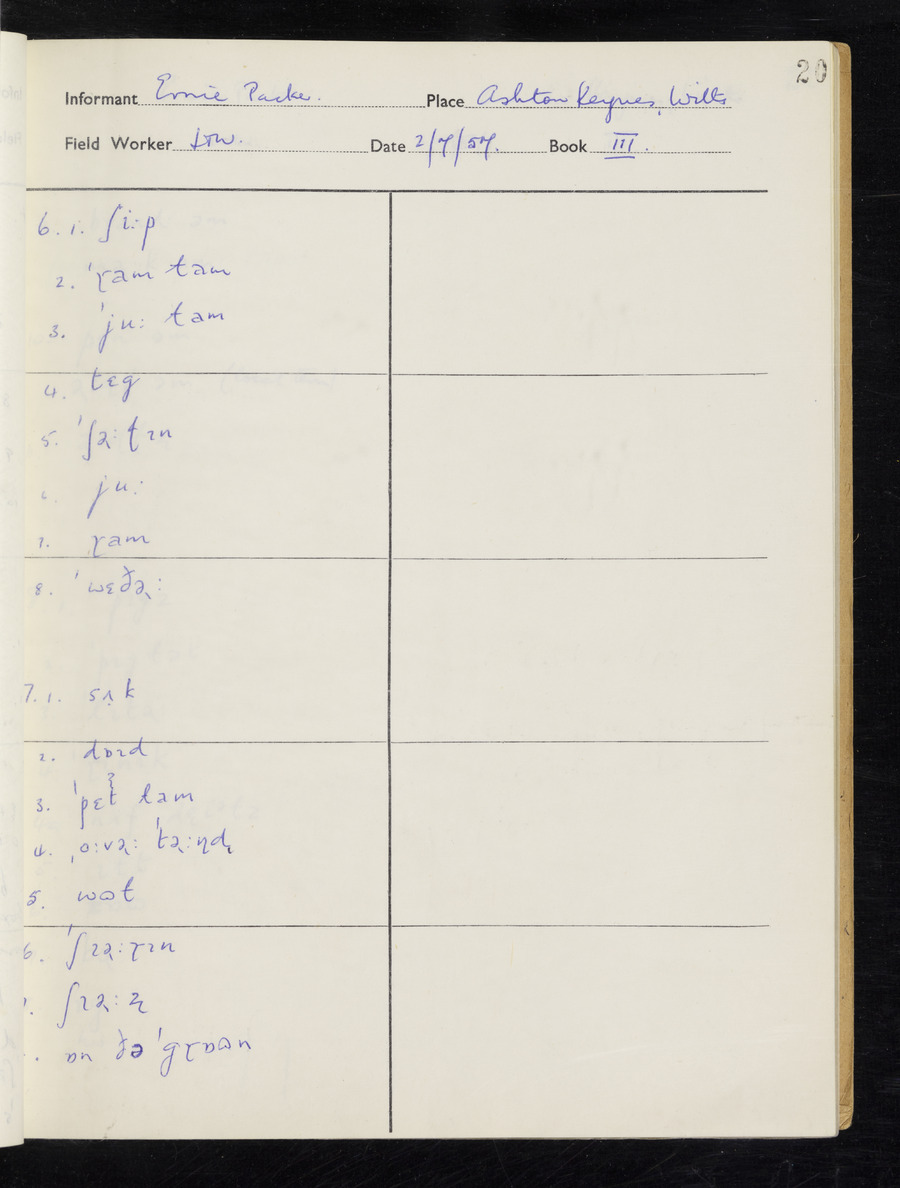 20
Informant Ernie Packer. Place Ashton Keynes, Wilts
Field Worker Date 2/7/57. Book III.
6. 1. ʃi:p
2. ˈɽam tam
3. ˈju: tam
4. tɛg
5. ˈʃɚ: ʈɪn
6. ju:
7. ɽam
8. ˈwɛðɚ:
7. 1. sʌ̣k
2. dɒɪd
3. ˈpɛt tam
4. ˌo:vɚ: ˈtɚ:ɳɖ
5. wɒt
6. ˈʃɪɚ:ɽɪn
7. ʃɪɚ:ʐ
ɒn ðə ˈgɽɒʊn